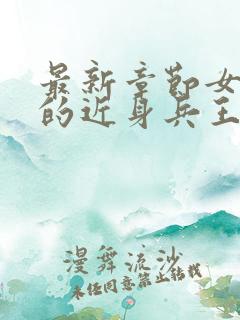 最新章节女
的近身兵王
漫舞流沙
未经同意禁止转载